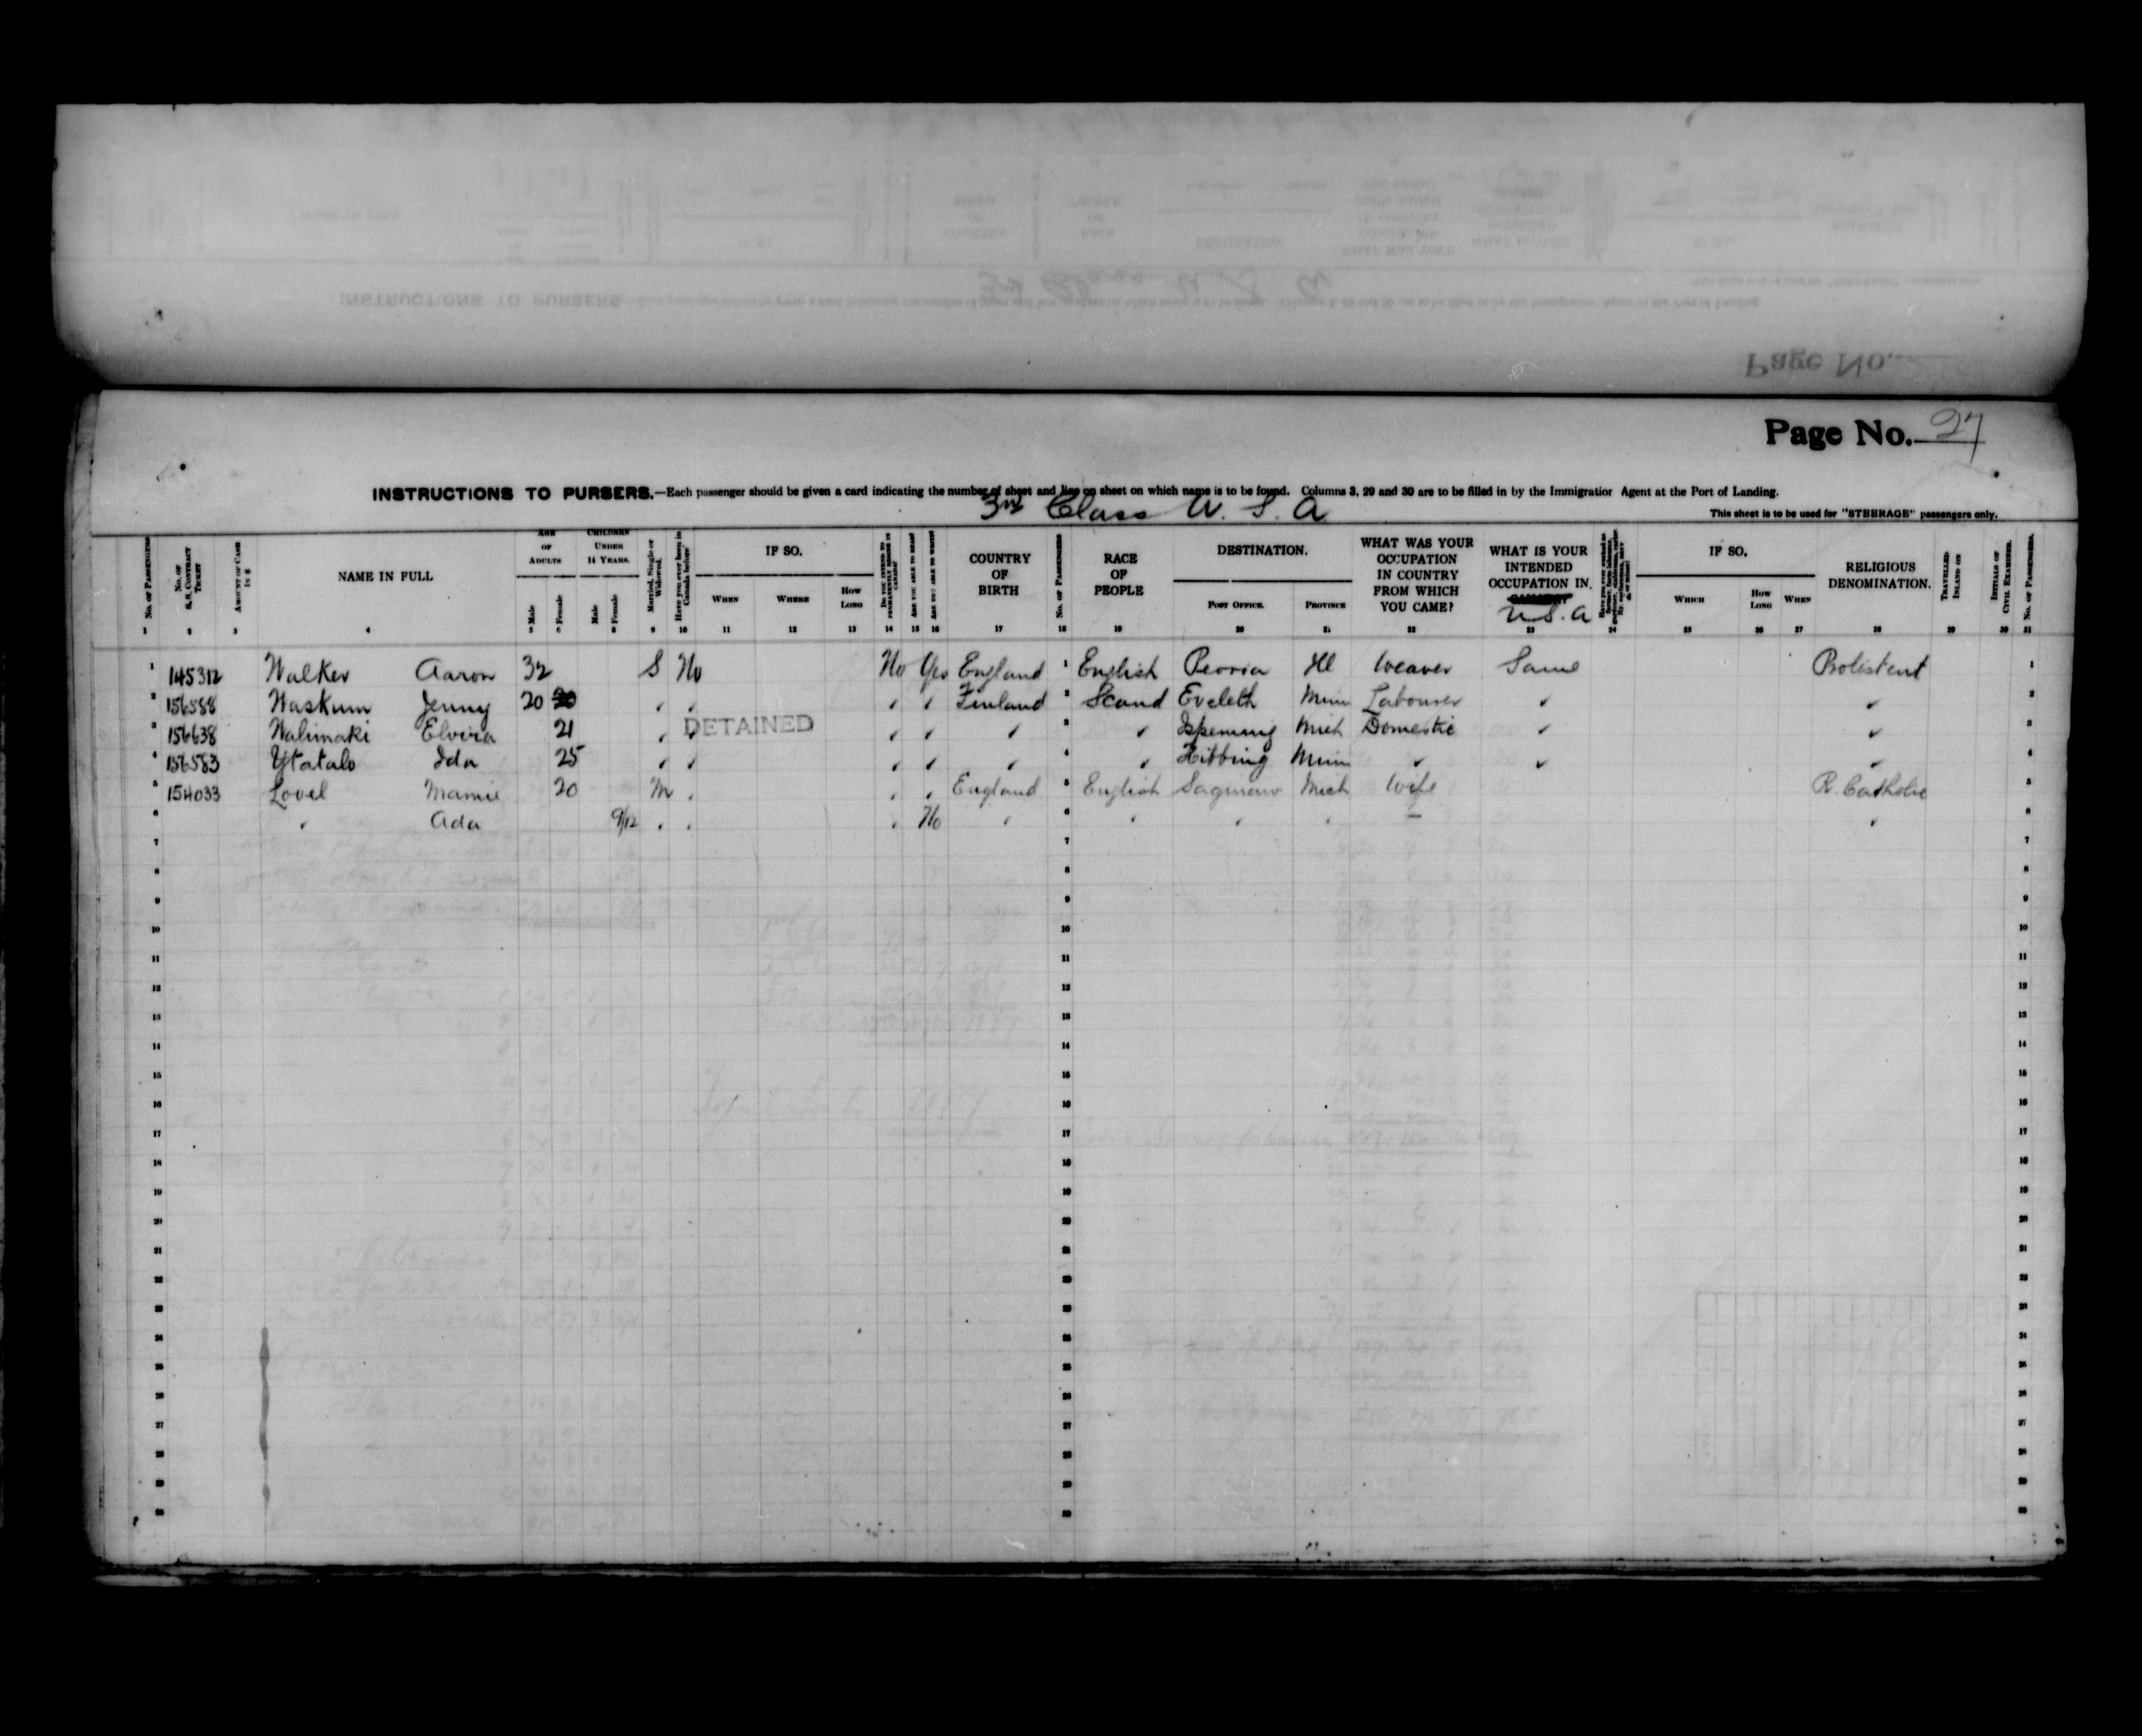 Page No. 27
INSTRUCTIONS TO PURSERS.—Each passenger should be given a card indicating the number of sheet and line on sheet on which name is to be found. Columns 3, 29 and 30 are to be filled in by the Immigration Agent at the Port of Landing.
3rd Class U. S. A
This sheet is to be used for "STEERAGE" passengers only.
No. of Passengers 1
No. of S.S. Contract Ticket 2
Amount of Cash in $ 3
NAME IN FULL 4
AGE OF ADULTS Male 5 Female 6
CHILDREN UNDER 14 YEARS. Male Female 8
Married, Single or Widowed. 9
Have you ever been in Canada before? 10
IF SO. WHEN 11 WHERE 12 HOW LONG 13
Do you intend to permanently reside in Canada? 14
Are you able to read? 15
Are you able to write? 16
COUNTRY OF BIRTH 17
No. of Passengers 18
RACE OF PEOPLE 19
DESTINATION. POST OFFICE. 20 PROVINCE 21
WHAT WAS YOUR OCCUPATION IN COUNTRY FROM WHICH YOU CAME? 22
WHAT IS YOUR INTENDED OCCUPATION IN U.S.A 23
24
IF SO. WHICH 25 HOW LONG 26 WHEN 27
RELIGIOUS DENOMINATION. 28
TRAVELLED INLAND ON 29
INITIALS OF CIVIL EXAMINER. 30
No. of Passengers. 31
1 145312 Walker Aaron 32 S No No Yes England 1 English Peoria Ill Weaver Same Protistent 1
2 156588 Waskum Jenny 20 20 " " " " Finland 2 Scand Eveleth Minn Labourer " " 2
3 156638 Walimaki Elvira 21 " " DETAINED " " " 3 " Ispeming Mich Domestic " " 3
4 156583 Ytatalo Ida 25 " " " " " 4 " Hibbing Minn " " " 4
5 154033 Lovel Mamie 20 M " " " England 5 English Saginaw Mich Wife R. Catholic 5
6 " Ada 9/12 " " " No " 6 " " " — " 6
7 7 7
8 8 8
9 9 9
10 10 10
11 11 11
12 12 12
13 13 13
14 14 14
15 15 15
16 16 16
17 17 17
18 18 18
19 19 19
20 20 20
21 21 21
22 22 22
23 23 23
24 24 24
25 25 25
26 26 26
27 27 27
28 28 28
29 29 29
30 30 30